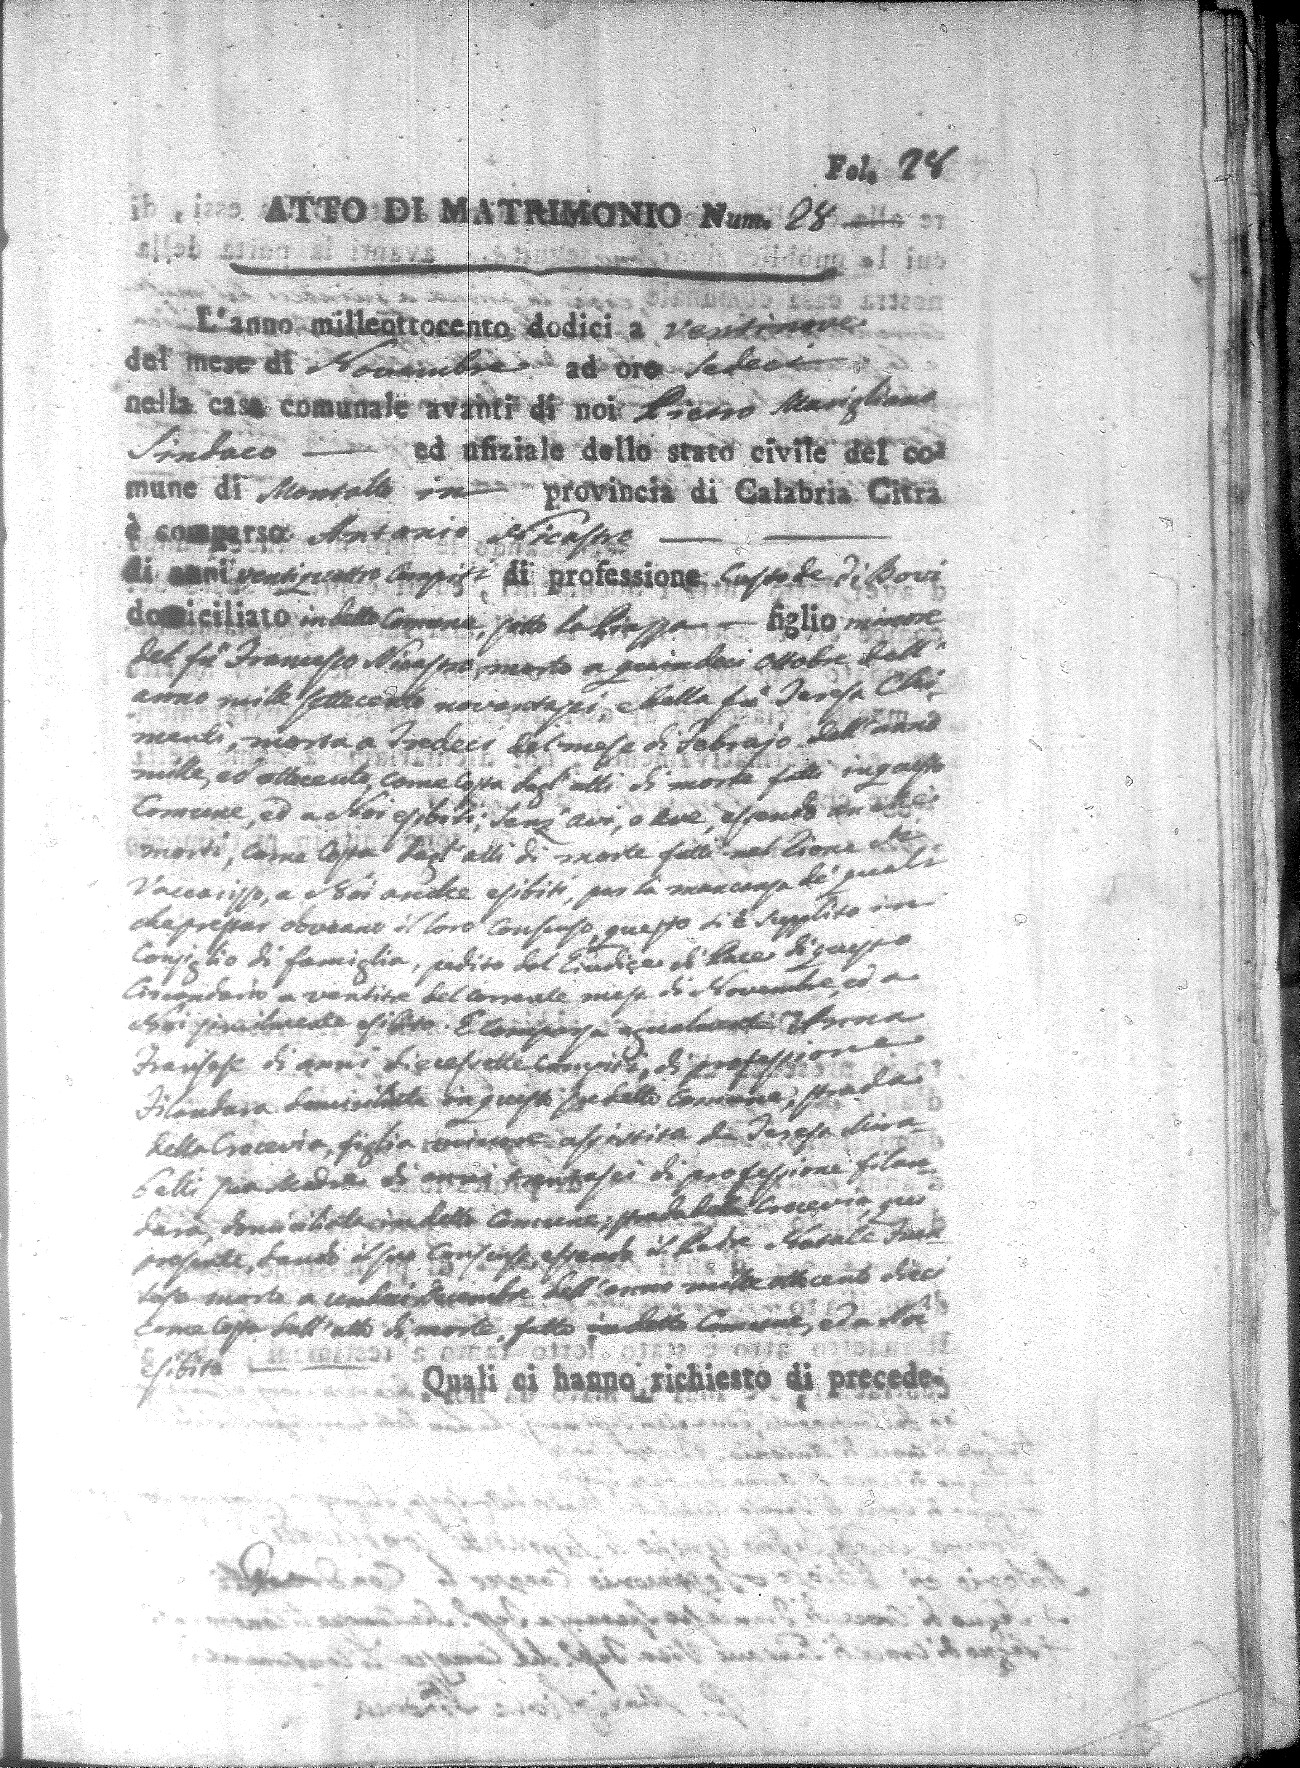 Fol. 28
ATTO DI MATRIMONIO Num. 28
L'anno milleottocento dodici a ventinove
del mese di Novembre ad ore sedeci
nella casa comunale avanti di noi Pietro Marigliano
Sindaco ed ufiziale dello stato civile del co-
mune di Montalto in provincia di Calabria Citra
è comparso Antonio Nicastro
di anni ventiquattro compiti di professione Custode di Bovi
domiciliato in detto Comune, sotto la Piazza figlio minore
del fu Francesco Nicastro, morto a quindeci ottobre dell'
anno mille settecento novantasei, e della fu Teresa Chi-
menti, morta a tredeci del mese di Febrajo dell'anno
mille, ed ottecento, come costa dagl'atti di morte fatti in questo
Comune, ed a Noi esibiti; senz'avi, o ave, essendo anche
morti, come costa dagl'atti di morte fatti nel Comune di
Vaccarizzo, a Noi anche esibiti, per la mancanza de' quali
che prestar dovevano il loro consenso, questo si è supplito in
Consiglio di famiglia, sedito dal Giudice di Pace di questo
Circondario a ventitre del corrente mese di Novembre, ed a
Noi similmente esibito. È comparsa egualmente Anna
Franzese di anni diecesette compiti, di professione
Filandara domiciliata in questo sudetto Comune, strada
della Crocevia, figlia minore assistita da Teresa Mira-
belli sua Madre di anni trentasei di professione filan-
dara, domiciliata in detto Comune, strada della Crocevia, qui
presente, dando il suo consenso, essendo il Padre Natale Fran-
zese morto a undeci Decembre dell'anno mille ottecento dieci
come costa dall'atto di morte, fatto in detto Comune, ed a Noi
esibito
Quali ci hanno richiesto di precede-